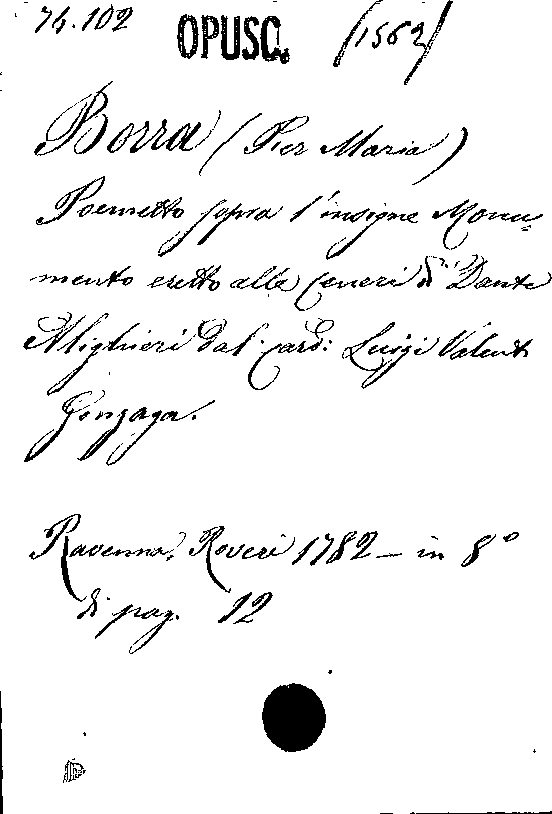 74.102 OPUSC. (1562)
Borra (Pier Maria)
Poemetto sopra l'insigne Monu-
mento eretto alle Ceneri di Dante
Alighieri dal Card: Luigi Valenti
Gonzaga.
Ravenna, Roveri 1782 — in 8°
di pag. 12